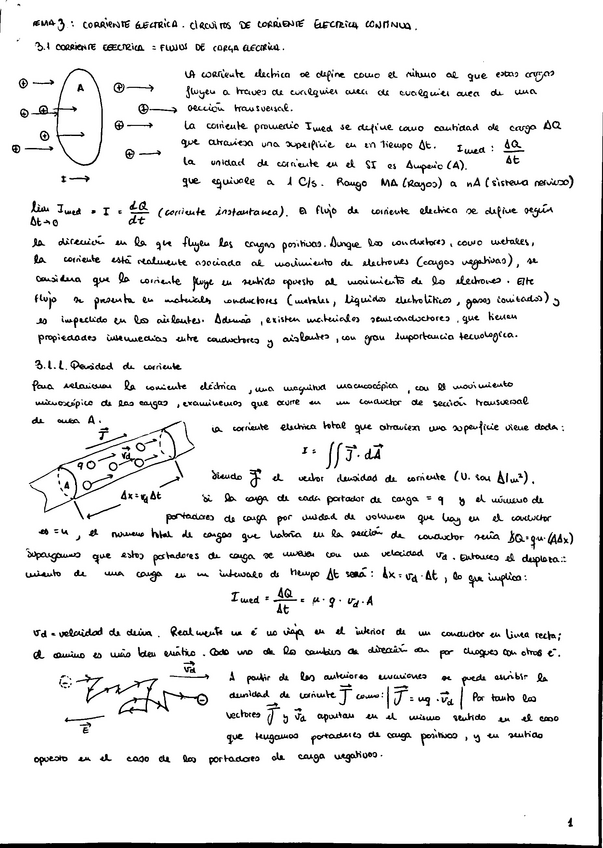 TEMA 3 : CORRIENTE ELECTRICA. CIRCUITOS DE CORRIENTE ELECTRICA CONTINUA.
3.1 CORRIENTE ELECTRICA = FLUJOS DE CARGA ELECTRICA.
A
I →
LA corriente electrica se define como el ritmo al que estas cargas
fluyen a traves de cualquier area de cualquier area de una
sección transversal.
La corriente promedio Imed se define como cantidad de carga ΔQ
que atraviesa una superficie en un tiempo Δt. Imed : ΔQ/Δt
la unidad de corriente en el SI es Amperio (A).
que equivale a 1 C/s. Rango MA (Rayos) a nA (sistema nervioso)
lim Δt→0 Imed = I = dQ/dt (corriente instantanea). El flujo de corriente electrica se define según
la dirección en la que fluyen las cargas positivas. Aunque los conductores, como metales,
la corriente está realmente asociada al movimiento de electrones (cargas negativas), se
considera que la corriente fluye en sentido opuesto al movimiento de lo electrones. Este
flujo se presenta en materiales conductores (metales, liquidos electrolíticos, gases ionizados) y
es impedido en los aislantes. Además, existen materiales semiconductores, que tienen
propiedades intermedias entre conductores y aislantes, con gran importancia tecnologica.
3.1.1. Densidad de corriente
Para relacionar la corriente eléctrica, una magnitud macroscópica, con el movimiento
microscópico de las cargas, examinemos que ocurre en un conductor de sección transversal
de area A.
J
q vd
A
Δx = vd Δt
la corriente electrica total que atraviesa una superficie viene dada:
I = ∬ J · dA
Siendo J el vector densidad de corriente (U. son A/m²).
Si la carga de cada portador de carga = q y el número de
portadores de carga por unidad de volumen que hay en el conductor
es = n, el numero total de cargas que habría en la sección de conductor sería ΔQ = qn·(AΔx)
Supongamos que estos portadores de carga se mueven con una velocidad vd. Entonces el desplaza-
miento de una carga en un intervalo de tiempo Δt será: Δx = vd · Δt, lo que implica:
Imed = ΔQ/Δt = n · q · vd · A
vd = velocidad de deriva. Realmente un é no viaja en el interior de un conductor en linea recta;
el camino es más bien errático. Cada uno de los cambios de dirección son por choques con otros é.
vd
E
A partir de las anteriores ecuaciones se puede escribir la
densidad de corriente J como: | J = nq · vd | Por tanto los
vectores J y vd apuntan en el mismo sentido en el caso
que tengamos portadores de carga positivos, y en sentido
opuesto en el caso de los portadores de carga negativos.
1